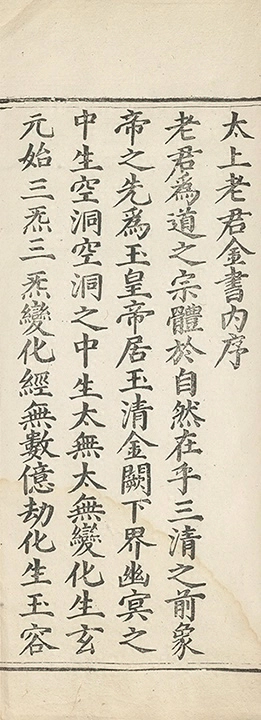 太上老君金書内序
老君為道之宗體於自然在乎三清之前象
帝之先為玉皇帝居玉清金闕下界幽冥之
中生空洞空洞之中生太無太無變化生玄
元始三炁三炁變化經無數億劫化生玉容